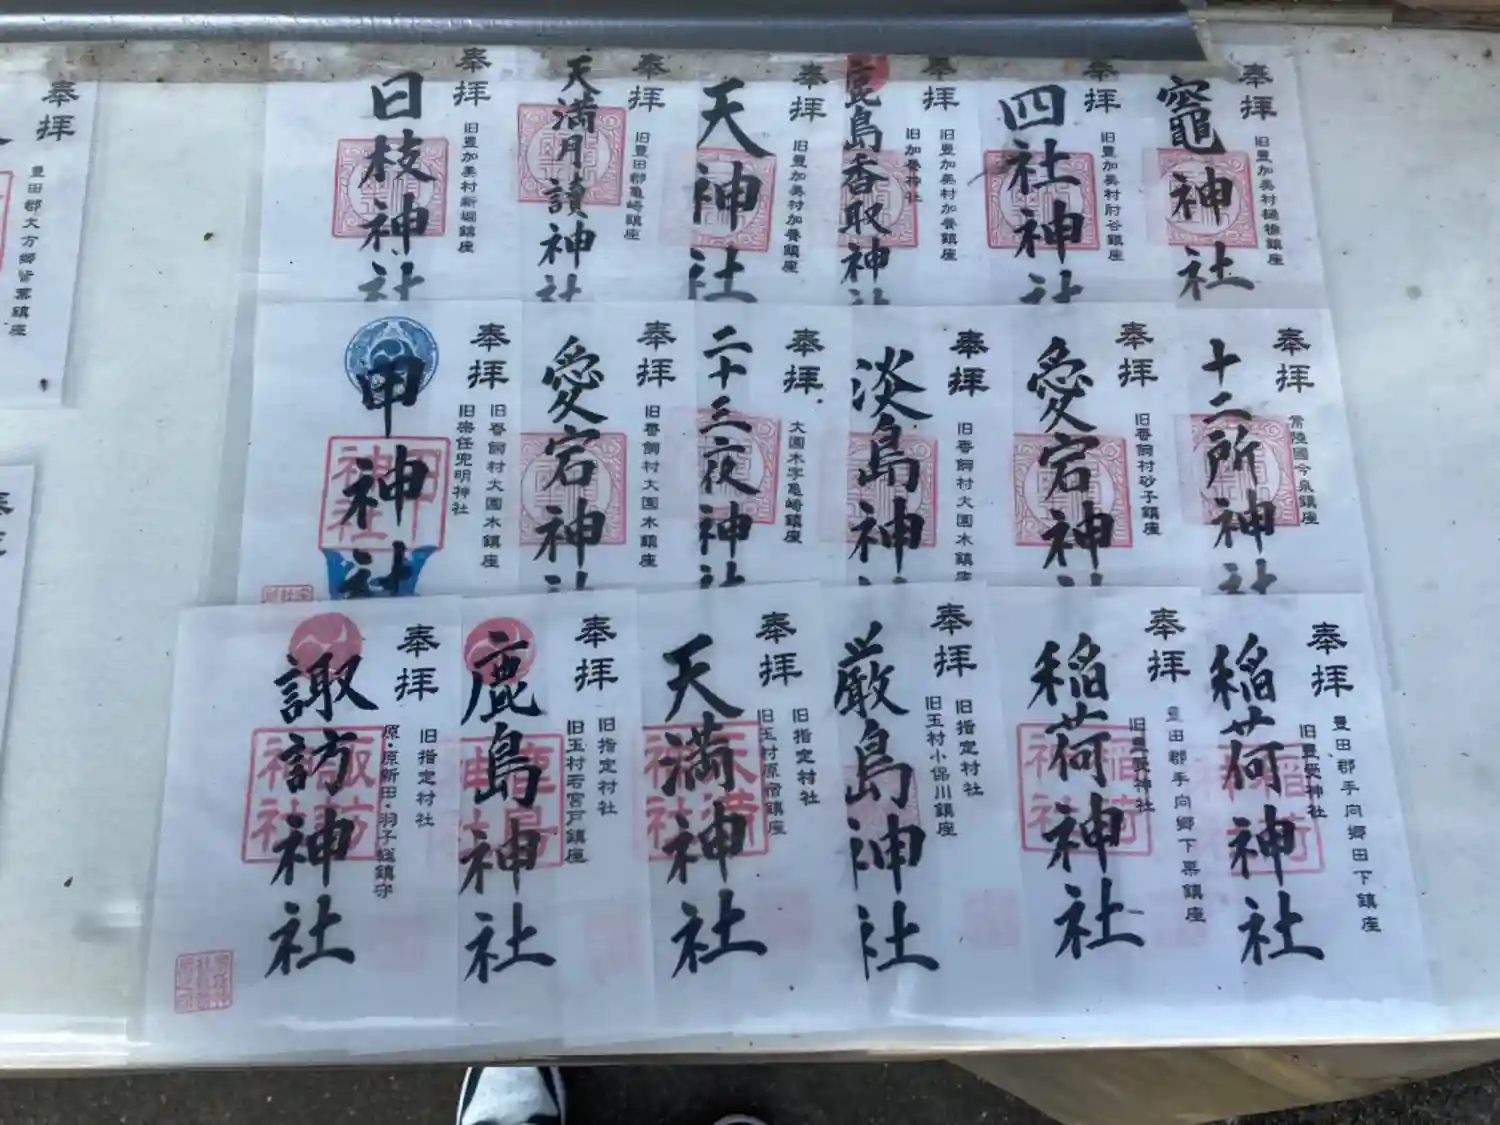 奉拝
旧豊加美村樋橋鎮座
竈神社
奉拝
旧豊加美村肘谷鎮座
四社神社
奉拝
旧豊加美村加養鎮座
旧加養神社
鹿島香取神社
奉拝
旧豊加美村加養鎮座
天神社
奉拝
旧豊田郡亀崎鎮座
天満月讀神社
奉拝
旧豊加美村新堀鎮座
日枝神社
奉拝
豊田郡大方郷皆葉鎮座
奉拝
常陸國今泉鎮座
十二所神社
奉拝
旧春飼村砂子鎮座
愛宕神社
奉拝
旧春飼村大園木鎮座
淡島神社
奉拝
大園木字亀崎鎮座
二十三夜神社
奉拝
旧春飼村大園木鎮座
愛宕神社
奉拝
旧春飼村大園木鎮座
旧宗任兜明神社
甲神社
奉拝
豊田郡手向郷田下鎮座
旧豊受神社
稲荷神社
奉拝
豊田郡手向郷下栗鎮座
旧豊受神社
稲荷神社
奉拝
旧指定村社
旧玉村小保川鎮座
厳島神社
奉拝
旧指定村社
旧玉村原宿鎮座
天満神社
奉拝
旧指定村社
旧玉村若宮戸鎮座
鹿島神社
奉拝
旧指定村社
原・原新田・羽子鎮守
諏訪神社